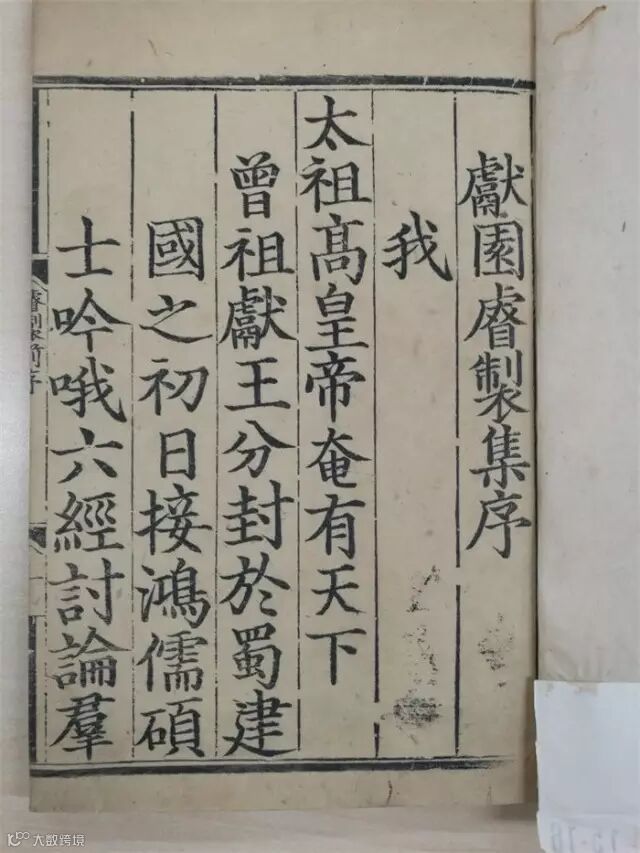 獻園睿製集序
我
太祖髙皇帝奄有天下
曾祖獻王分封於蜀建
國之初日接鴻儒碩
士吟哦六經討論羣
睿製前序
大数跨境